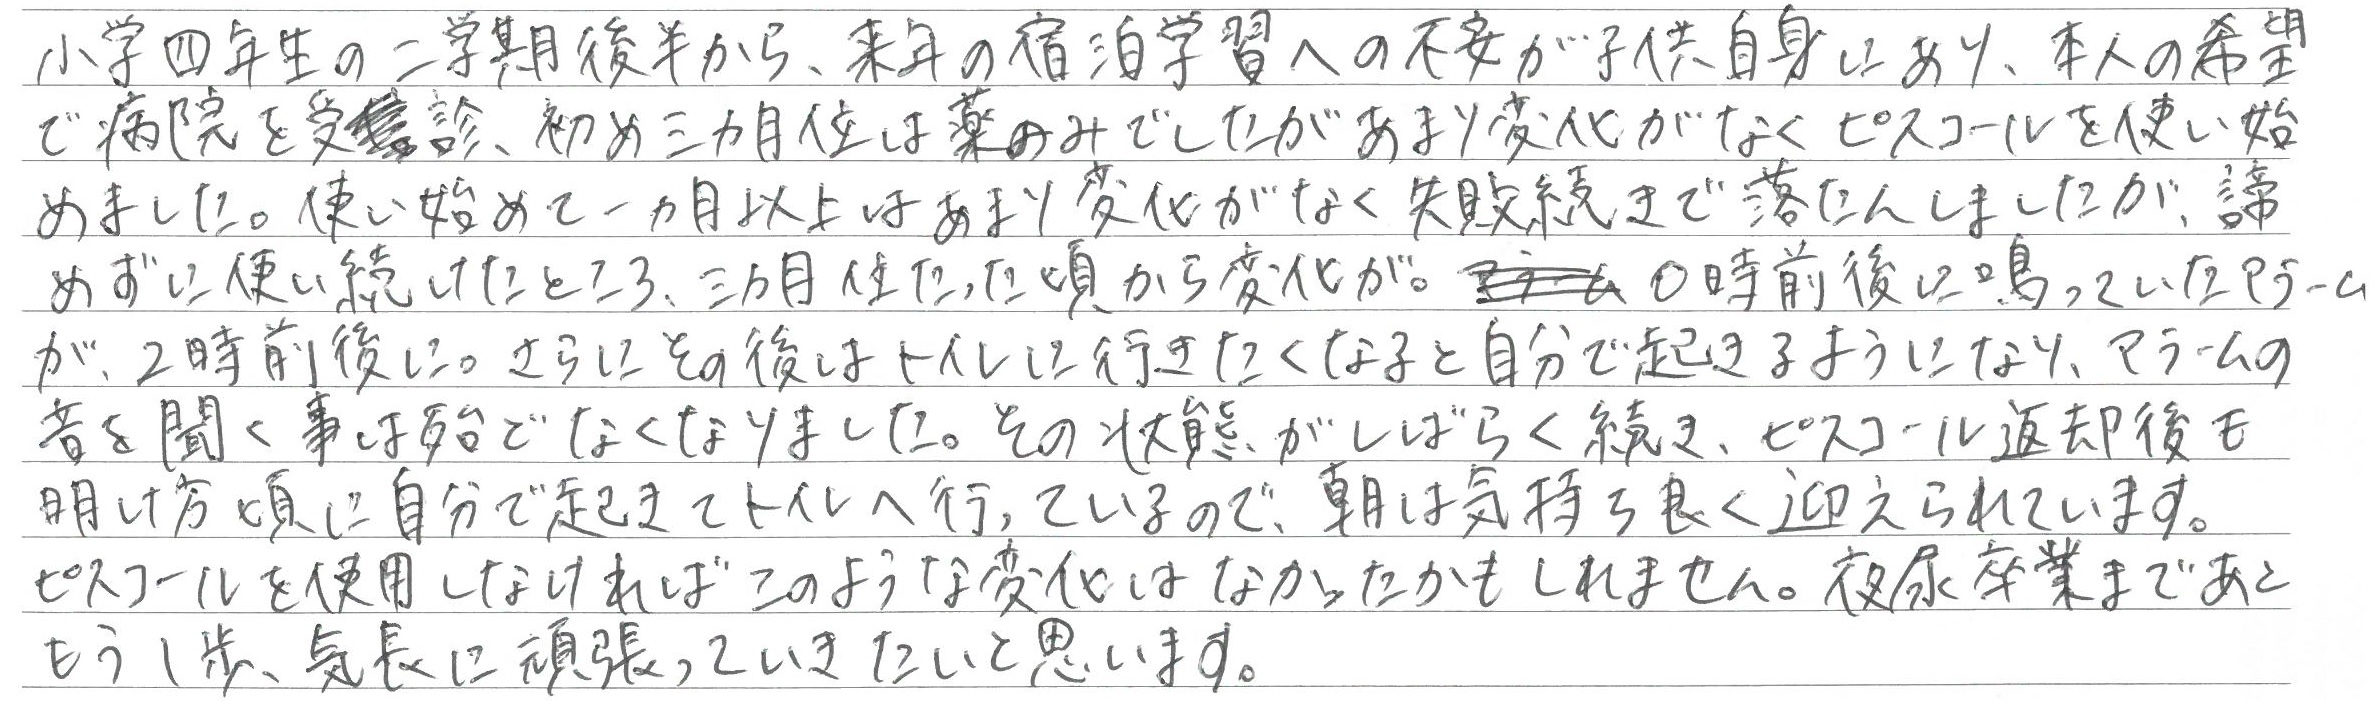 小学四年生の二学期後半から、来年の宿泊学習への不安が子供自身にあり、本人の希望
で病院を受診、初め三カ月位は薬のみでしたがあまり変化がなくピスコールを使い始
めました。使い始めて一ヵ月以上はあまり変化がなく失敗続きで落たんしましたが、諦
めずに使い続けたところ、三カ月位たった頃から変化が。0時前後に鳴っていたアラーム
が、2時前後に。さらにその後はトイレに行きたくなると自分で起きるようになり、アラームの
音を聞く事は殆どなくなりました。その状態がしばらく続き、ピスコール返却後も
明け方頃に自分で起きてトイレへ行っているので、朝は気持ち良く迎えられています。
ピスコールを使用しなければこのような変化はなかったかもしれません。夜尿卒業まであと
もう1歩、気長に頑張っていきたいと思います。